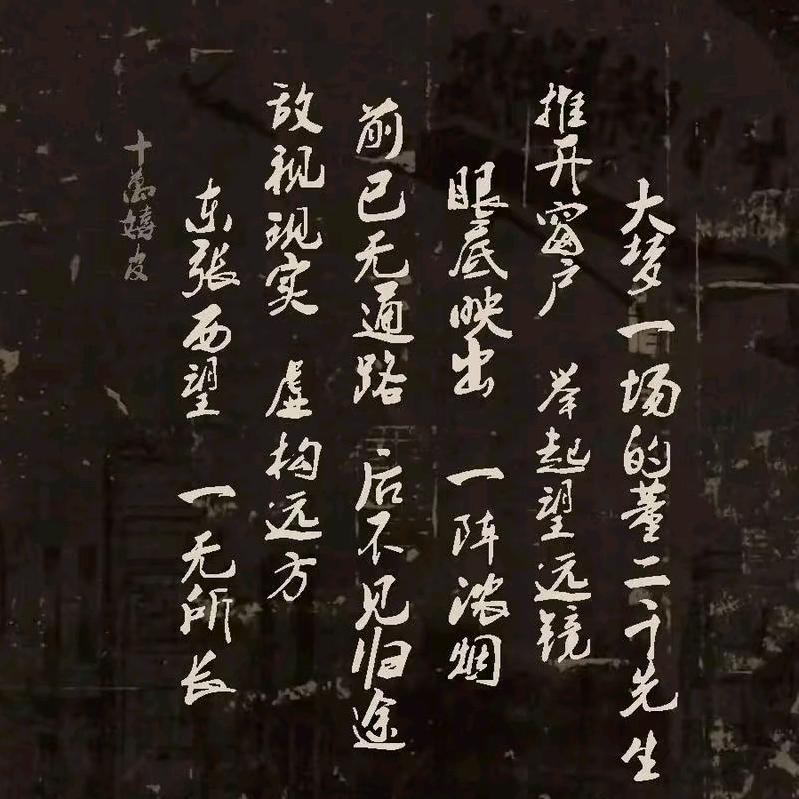 大梦一场的董二千先生
推开窗户 举起望远镜
眼底映出 一阵浓烟
前已无通路 后不见归途
敌视现实 虚构远方
东张西望 一无所长
十萬嬉皮